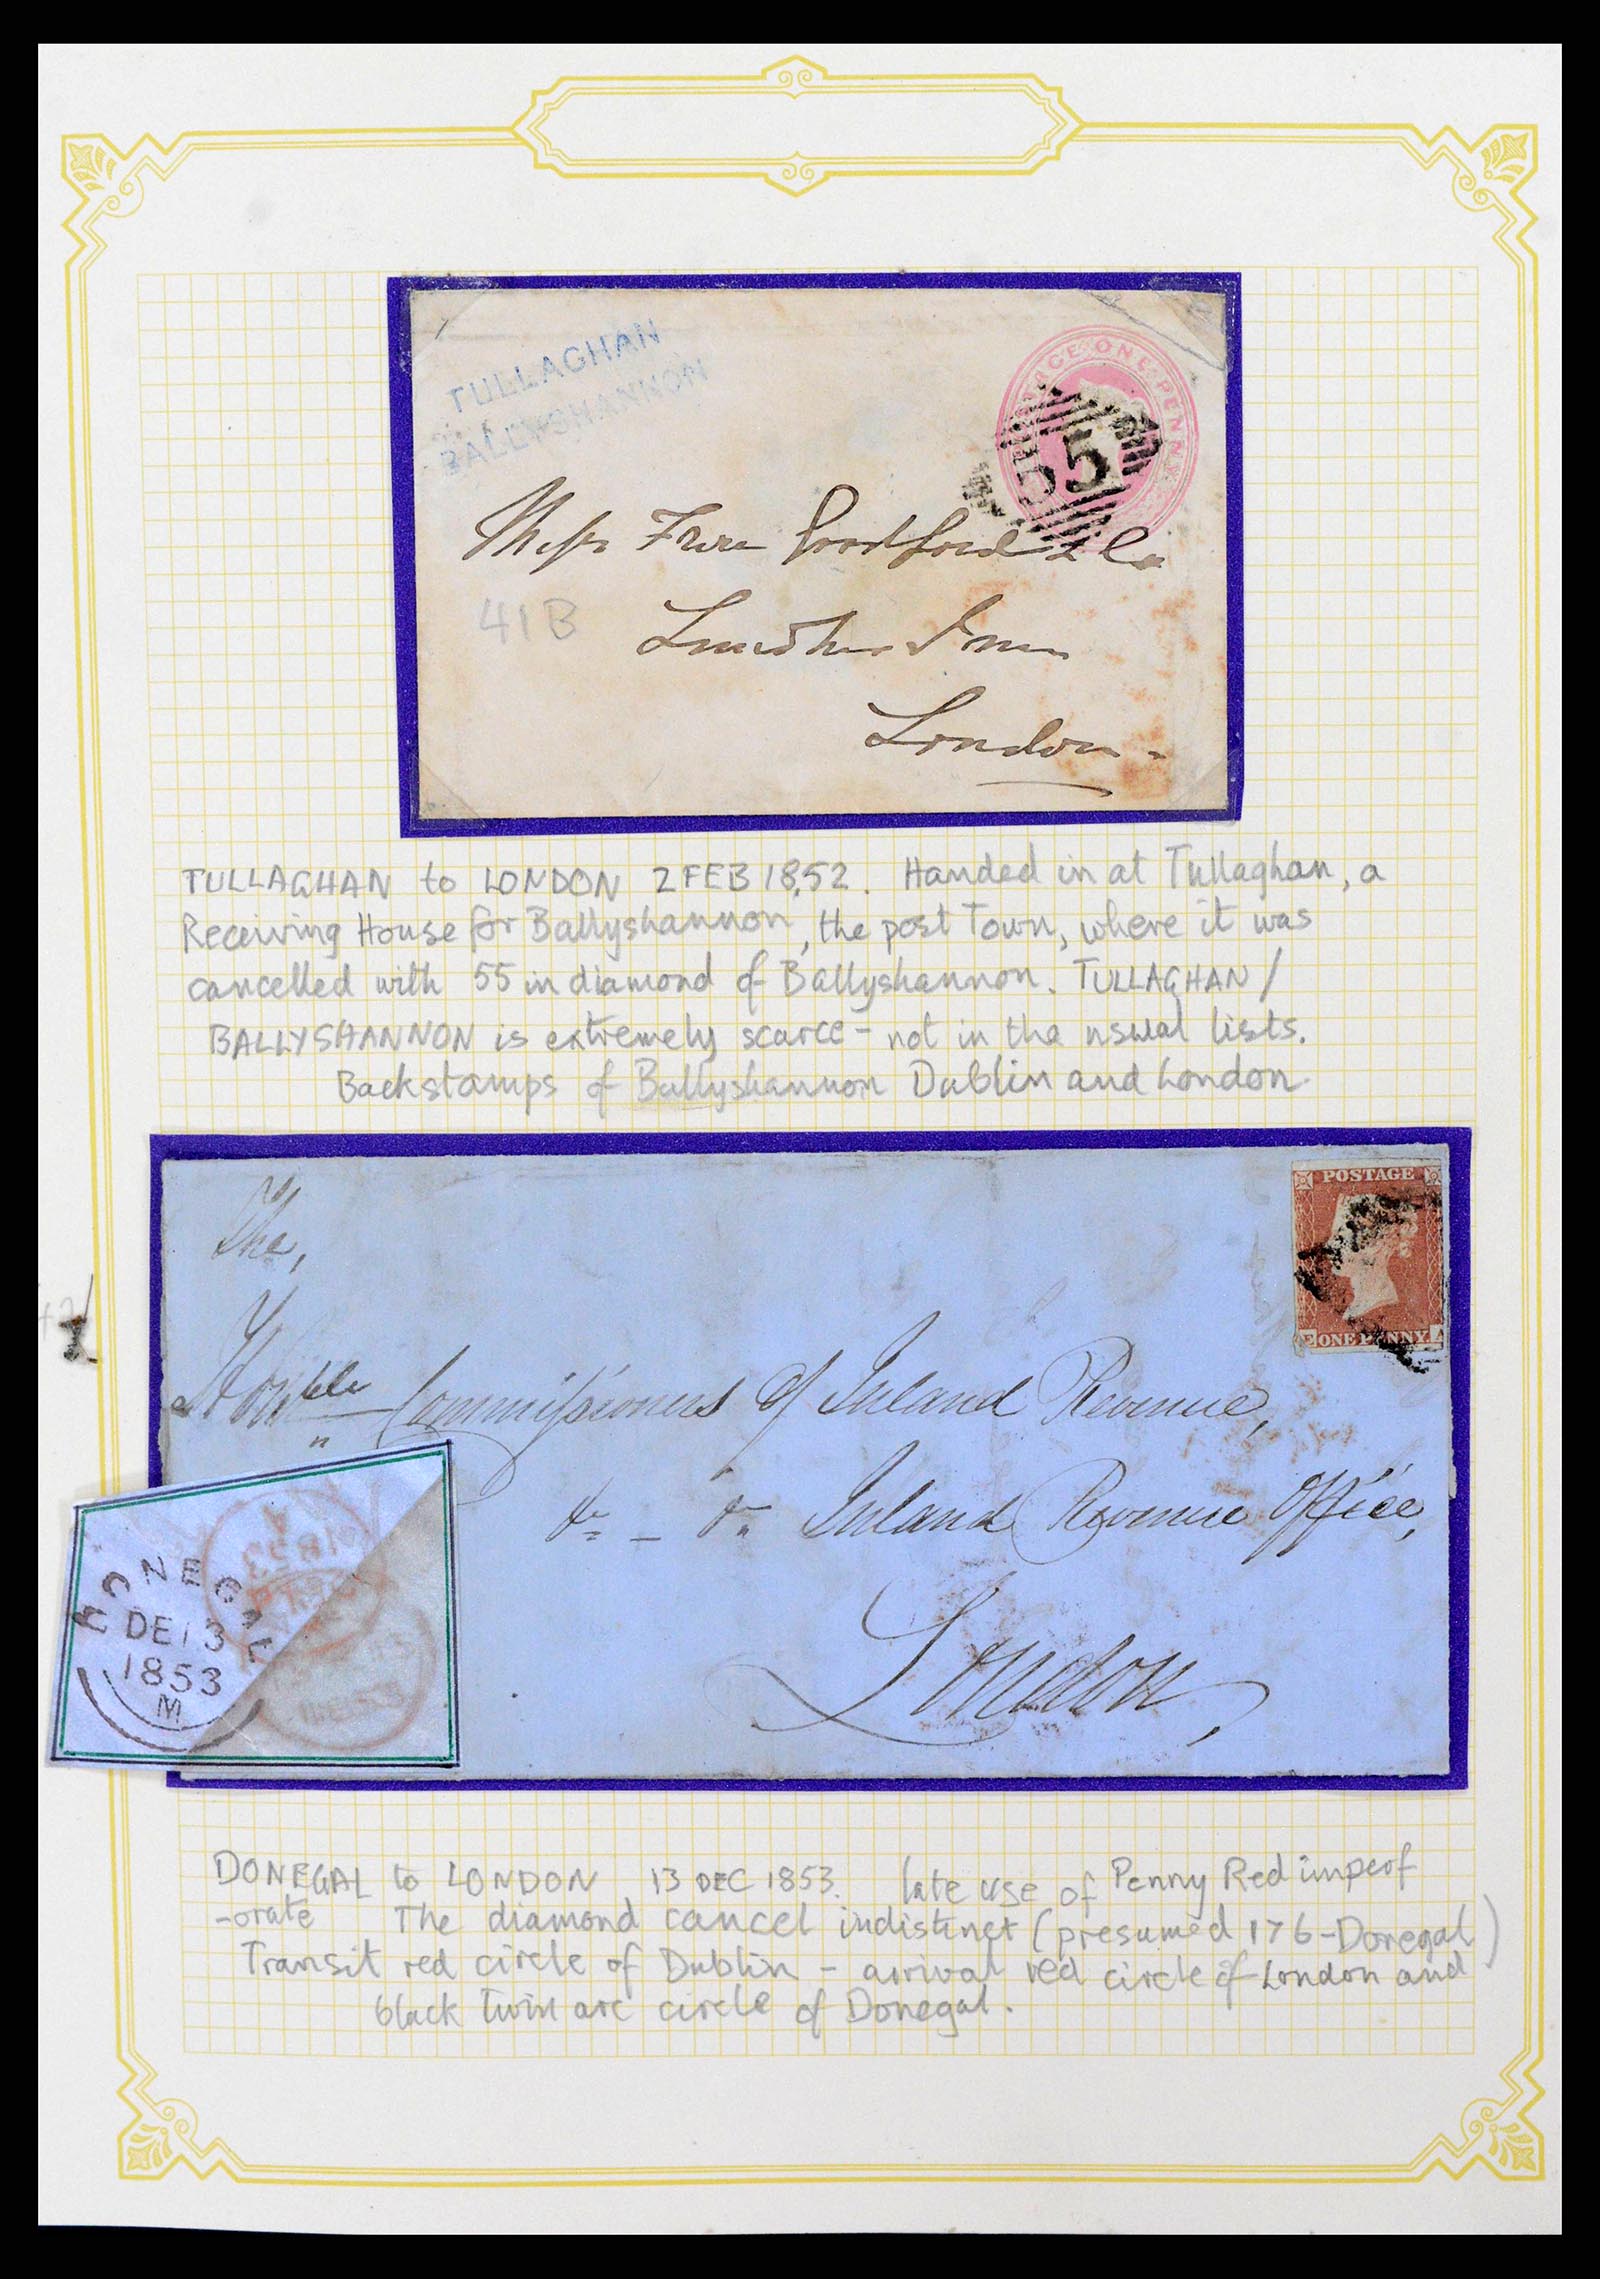 TULLAGHAN
BALLYSHANNON
POSTAGE ONE PENNY
55
Messrs Frere & Co
41B
Inn
London
TULLAGHAN to LONDON 2 FEB 1852. Handed in at Tullaghan, a
Receiving House for Ballyshannon, the post Town, where it was
cancelled with 55 in diamond of Ballyshannon. TULLAGHAN/
BALLYSHANNON is extremely scarce - not in the usual lists.
Backstamps of Ballyshannon Dublin and London
POSTAGE
ONE PENNY
The,
Honble Commissioners of Inland Revenue,
&c - &c Inland Revenue Office,
London,
DONEGAL
DE 13
1853
M
DONEGAL to LONDON 13 DEC 1853. late use of Penny Red imperf
-orate The diamond cancel indistinct (presumed 176-Donegal)
Transit red circle of Dublin - arrival red circle of London and
black twin arc circle of Donegal.